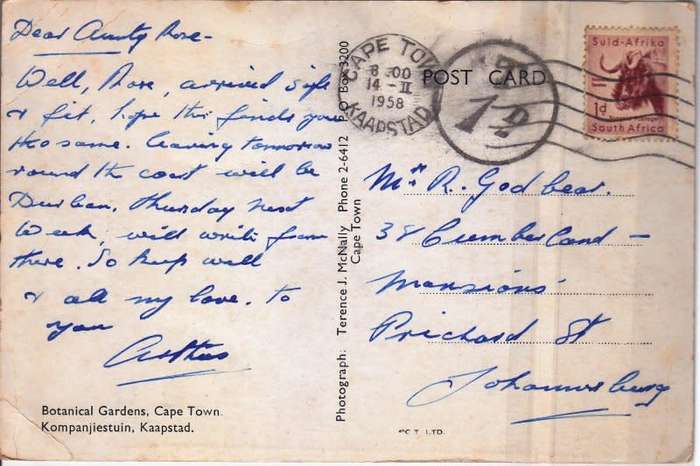 Dear Aunty Rose-
Well, Rose, arrived safe
& fit, hope this finds you
the same. leaving tomorrow
round the coast will be
Durban. thursday next
Week, will write from
there. So keep well
& all my love. to
you
Arthur
Botanical Gardens, Cape Town.
Kompanjiestuin, Kaapstad.
Photograph: Terence J. McNally Phone 2-6412 P.O Box 3200
Cape Town
CAPE TOWN
8.00
14-II
1958
KAAPSTAD
POST CARD
1D
Suid-Afrika
1d
South Africa
Mrs R. Godbear.
38 Cumberland -
Mansions
Prichard St
Johannesburg
LTD.